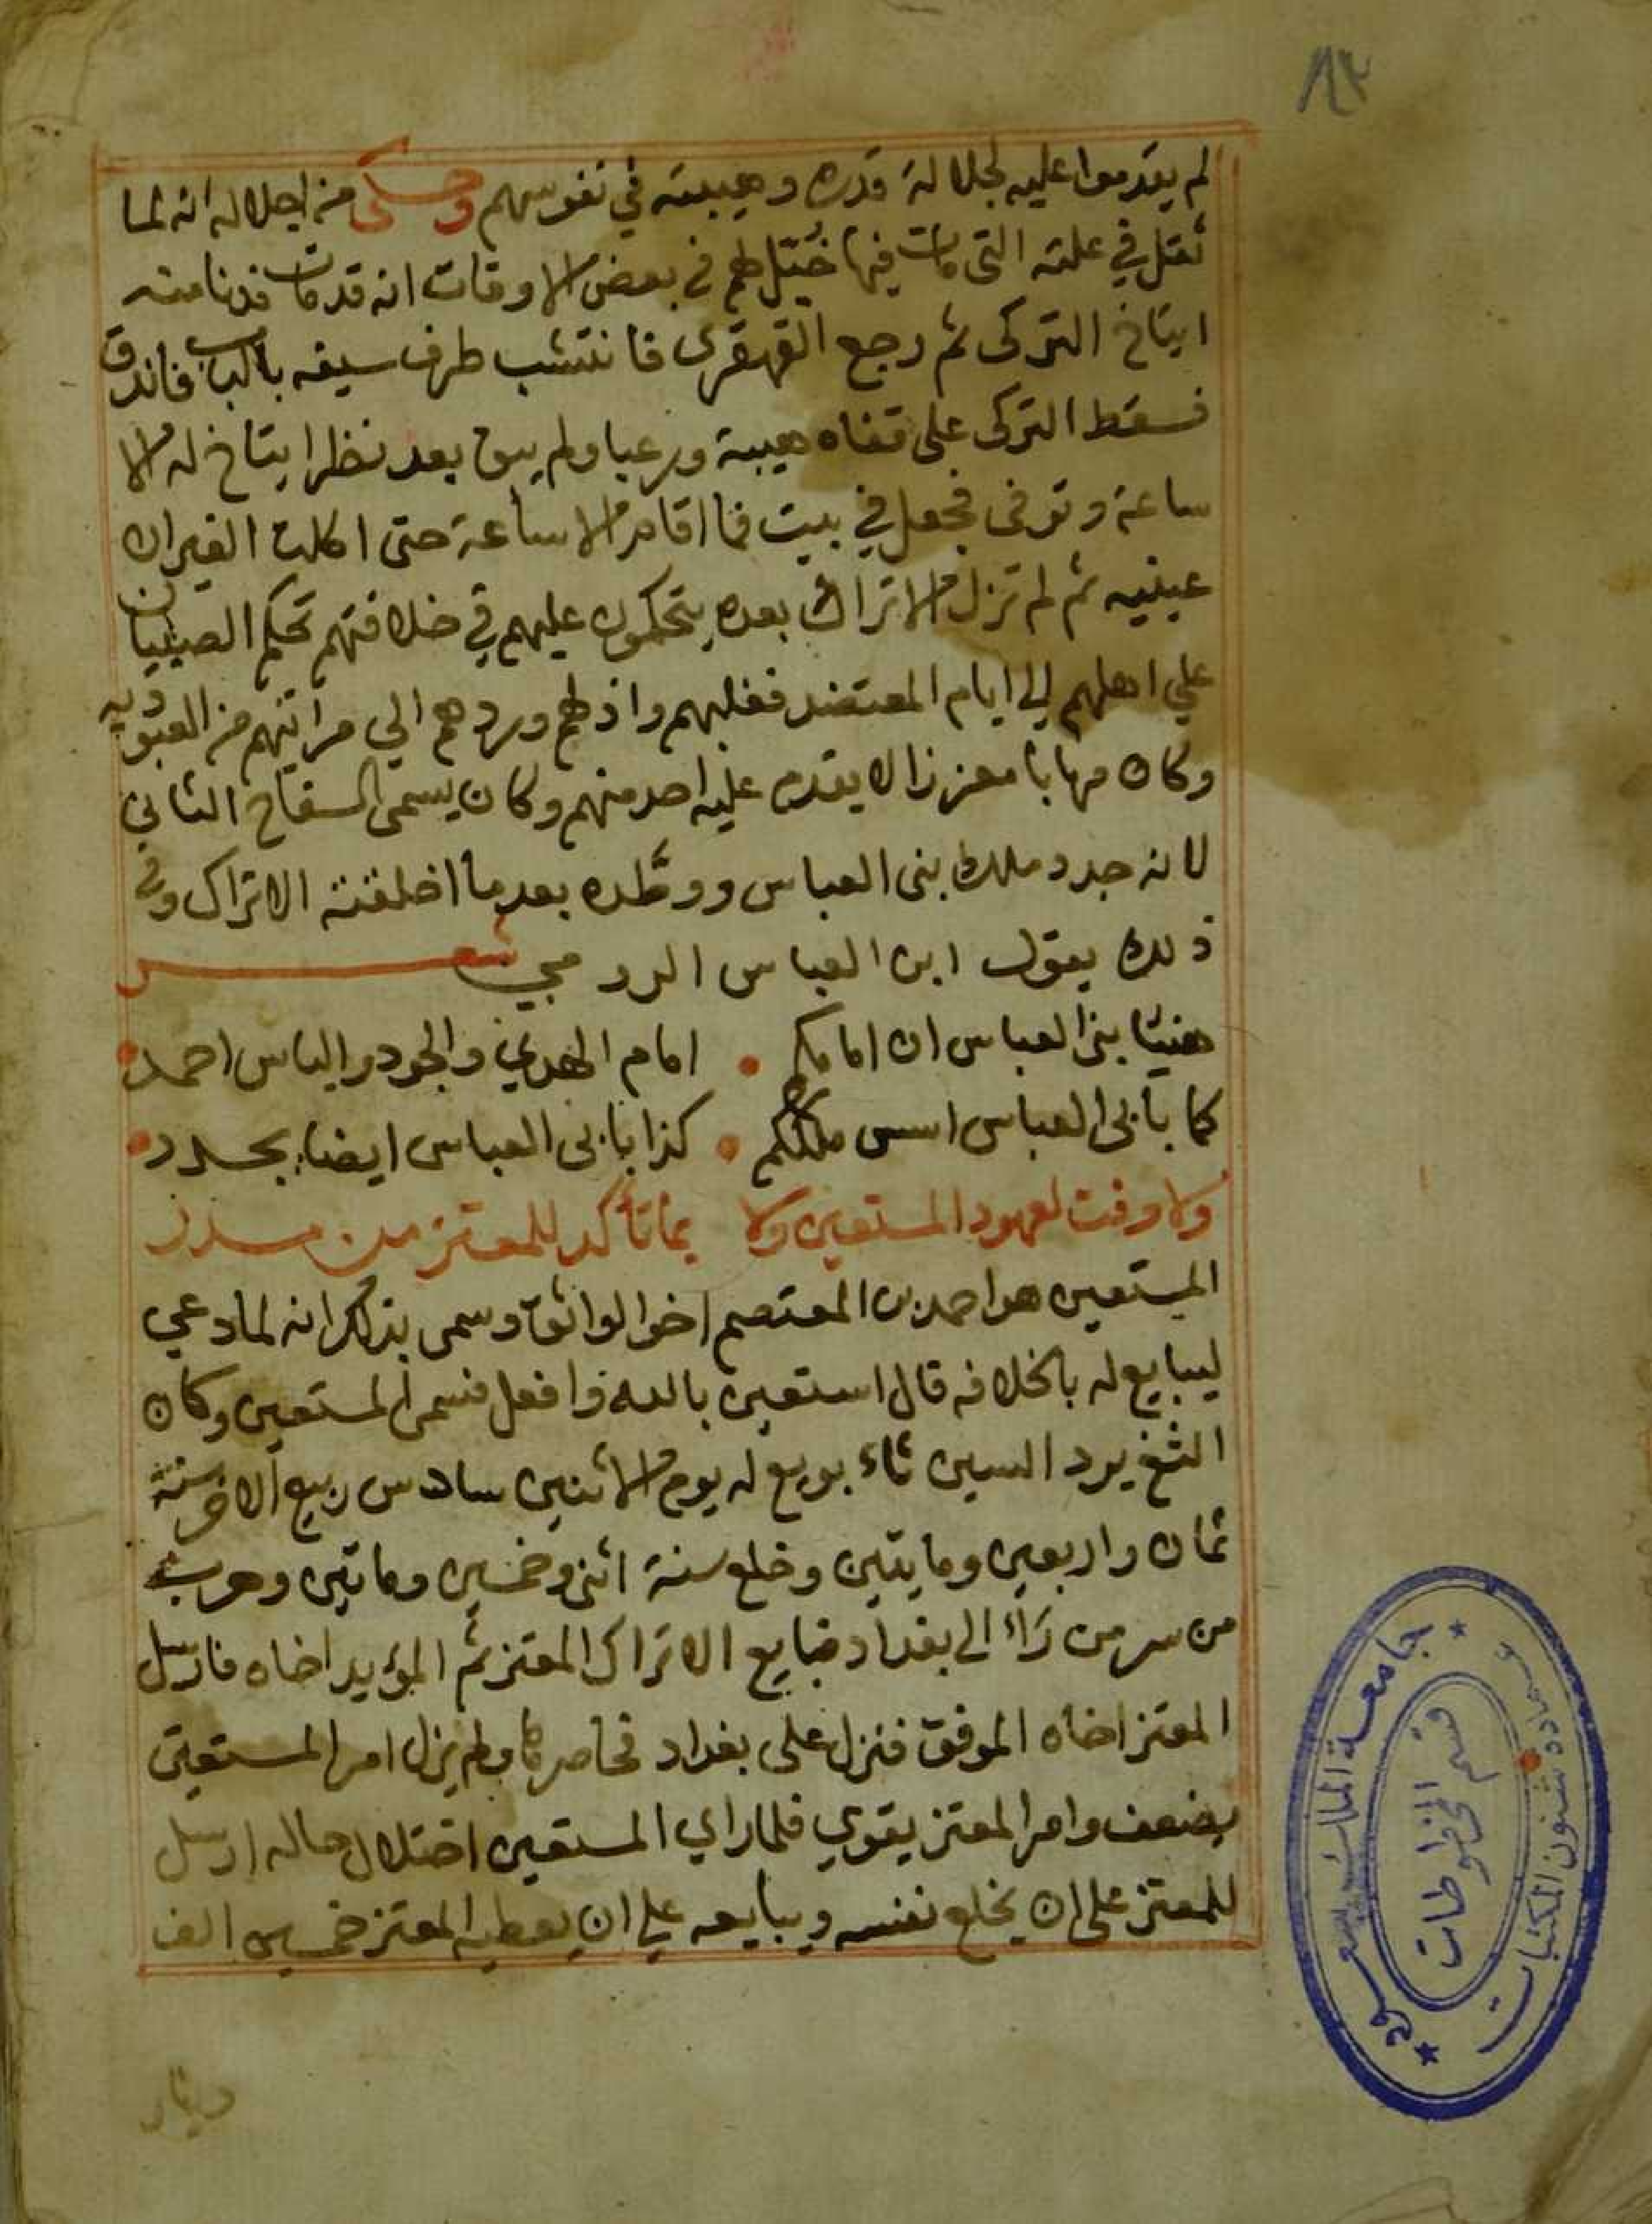 ٨٣
لم يقدموا عليه لجلالة قدره وهيبته في نفوسهم وحكى من اجلاله انه لما
ثقل في علته التي مات فيها خُيّل لهم في بعض الاوقات انه قد مات فدنا منه
ايتاخ التركى ثم رجع القهقرى فانتشب طرف سيفه بالباب فاندق
فسقط التركى على قفاه هيبة ورعبا ولم يبق بعد نظر ايتاخ له الا
ساعة وتوفى فجعل في بيت فما اقام الا ساعة حتى اكلت الفيران
عينيه ثم لم تزل الاتراك بعده يتحكمون عليهم في خلافتهم تحكم الصبيان
علي اهلهم الي ايام المعتضد فغلبهم واذلهم وردهم الي مراتبهم من العبودية
وكان مهابا معززا لا يقدم عليه احد منهم وكان يسمى السفاح الثاني
لانه جدد ملك بنى العباس ووطّده بعد ما اخلقته الاتراك وفي
ذلك يقول ابن العباس الرومي شعر
هنيئا بنى العباس ان امامكم • امام الهدي والجود والباس احمد •
كما بابى العباس اسس ملككم • كذا بابى العباس ايضا يجدد •
ولا وفت لعهود المستعين ولا بما تأكد للمعتز من مسدد
المستعين هو احمد بن المعتصم اخو الواثق وسمى بذلك لانه لما دعي
ليبايع له بالخلافه قال استعين بالله وافعل فسمى المستعين وكان
الثغ يرد السين ثاء بويع له يوم الاثنين سادس ربيع الاخر سنة
ثمان واربعين ومايتين وخلع سنة اثنى وخمسين ومايتين وهرب
من سر من رَاء الى بغداد فبايع الاتراك المعتز ثم المؤيد اخاه فارسل
المعتز اخاه الموفق فنزل على بغداد فحاصرها ولم يزل امر المستعين
يضعف وامر المعتز يقوي فلما راي المستعين اختلال حاله ارسل
للمعتز على ان يخلع نفسه ويبايعه علي ان يعطيه المعتز خمسين الف
دينار
جامعة الملك سعود
قسم المخطوطات
عمادة شئون المكتبات